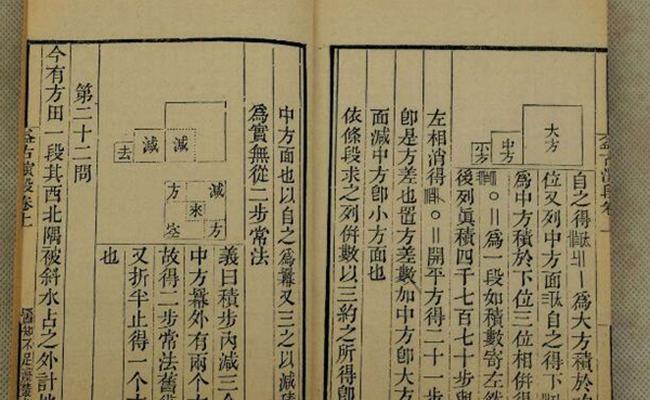 益古演段卷
大方
中方
小方
自之得爲大方積於
位又列中方面自之得下
爲中方積於下位三位相併得
〇〢爲一段如積數寄左然
後列眞積四千七百七十步與
左相消得〇〢開平方得二十一步
卽是方差也置方差數加中方卽大方
面減中方卽小方面也
依條段求之列併數以三約之所得卽
中方面也以自之爲冪又三之以減積
爲實無從二步常法
減
減
去
減
方
來
方
義曰積步內減三
中方冪外有兩个
故得二步常法舊
又折半止得一个
也
第二十二問
今有方田一段其西北隅被斜水占之外計地
益古演段卷上
知不足齋叢